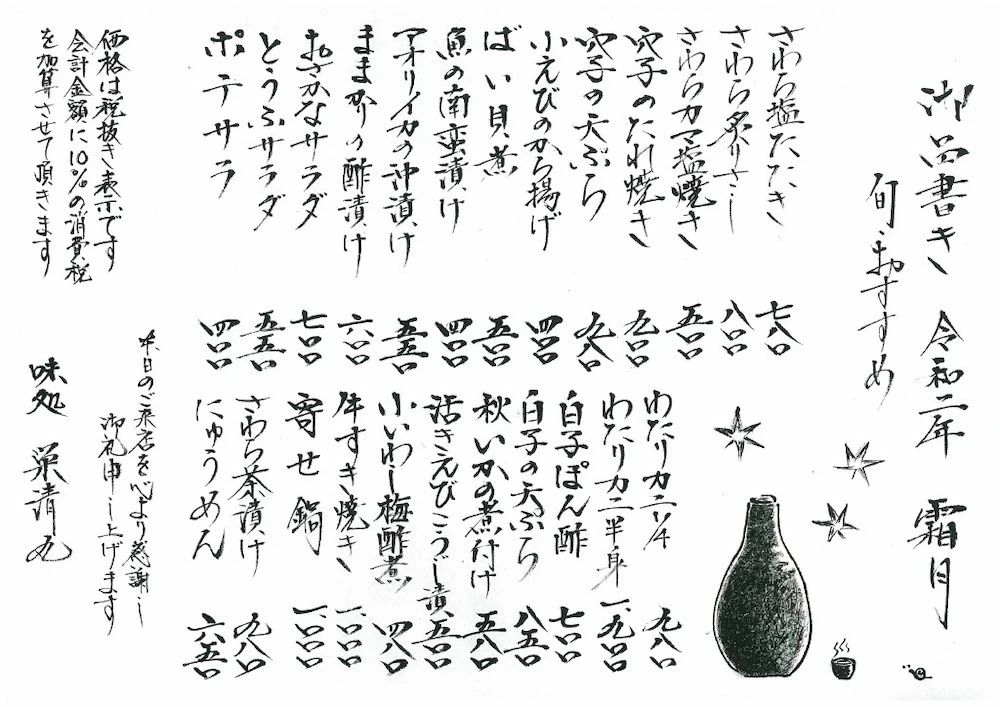 御品書き 令和二年 霜月
旬おすすめ
さわら塩たたき 七八〇
さわら炙りさし 八〇〇
さわらカマ塩焼き 五〇〇
穴子のたれ焼き 九〇〇
穴子の天ぷら 九八〇
小えびのから揚げ 四〇〇
ばい貝煮 五〇〇
魚の南蛮漬け 四〇〇
アオリイカの沖漬け 五五〇
ままかりの酢漬け 六〇〇
おさかなサラダ 七〇〇
とうふサラダ 五五〇
ポテサラ 四〇〇
わたりカニ1/4 九八〇
わたりカニ半身 一、九〇〇
白子ぽん酢 七〇〇
白子の天ぷら 八五〇
秋いかの煮付け 五八〇
活きえびこうじ漬 五〇〇
小いわし梅酢煮 四八〇
牛すき焼き 一、〇〇〇
寄せ鍋 一、〇〇〇
さわら茶漬け 九八〇
にゅうめん 六五〇
価格は税抜き表示です
会計金額に10%の消費税
を加算させて頂きます
本日のご来店を心より感謝し
御礼申し上げます
味処 栄清丸